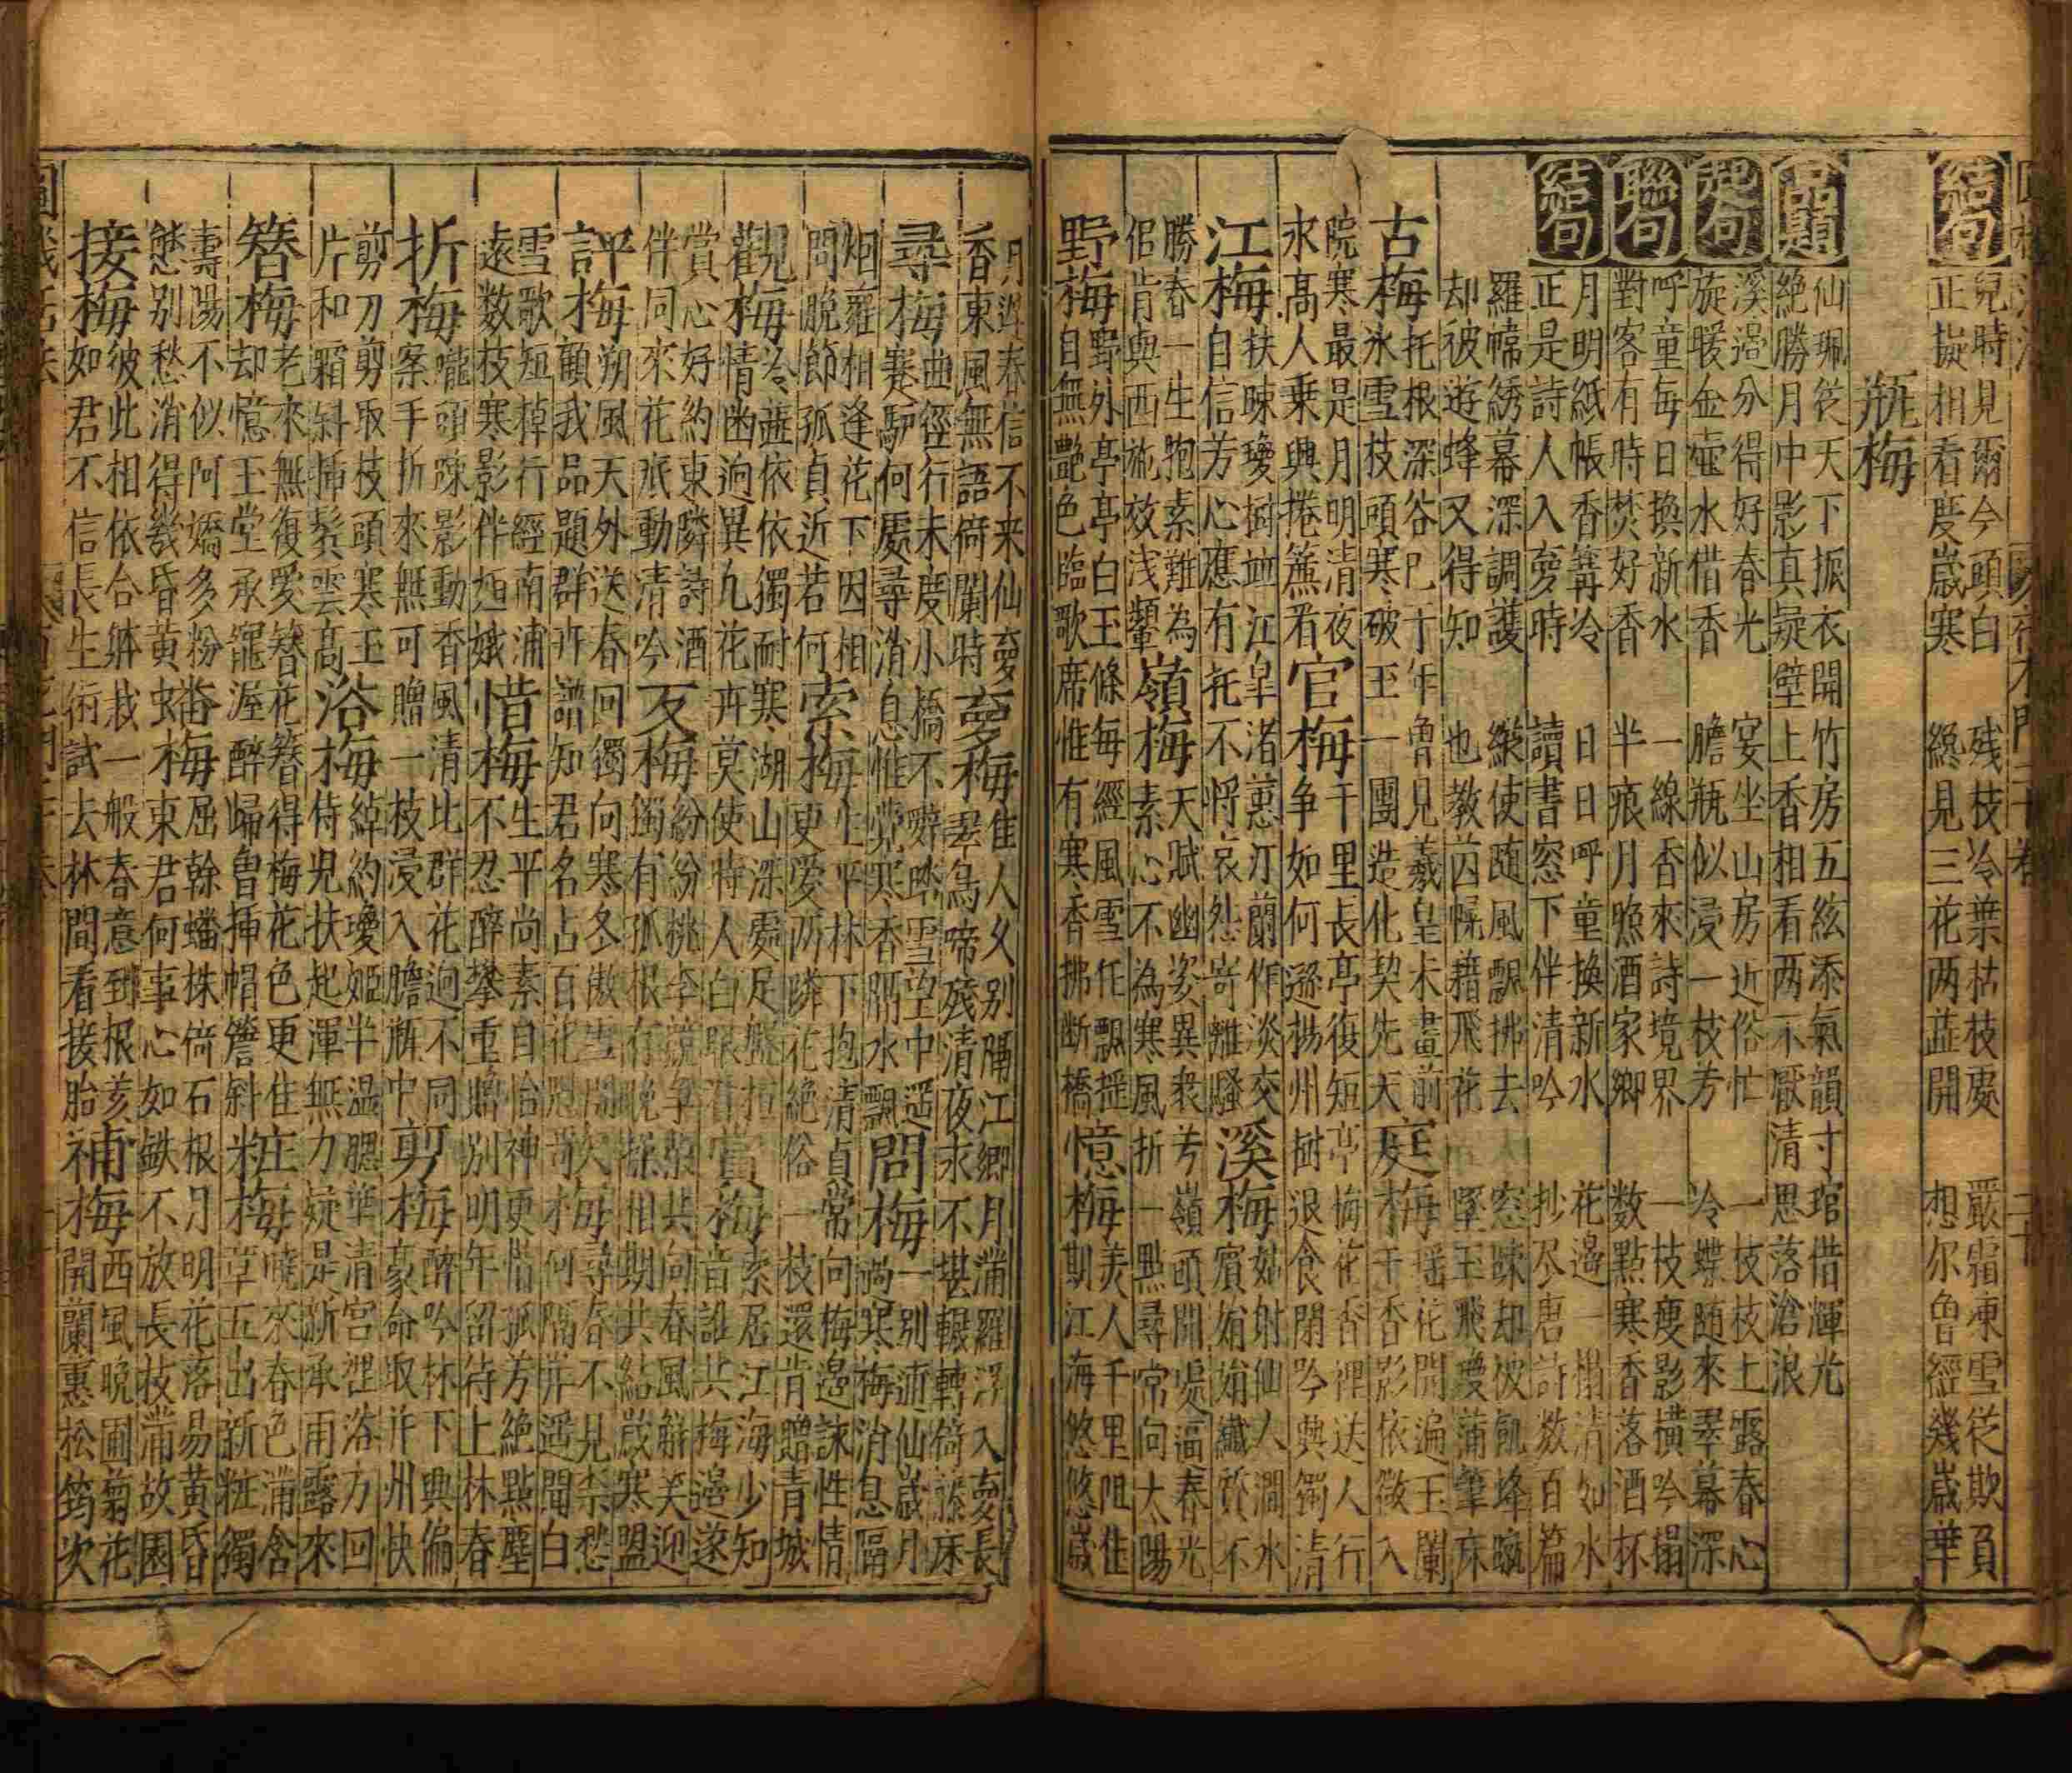 結句
兒時見爾今頭白　殘枝冷葉枯枝處　嚴霜凍雪從欺負
正擬相看度歲寒　總見三花两蕋開　想尔魯經幾歲華
瓶梅
品題
仙珮從天下振衣開竹房五絃添氣韻寸琯借輝光
絕勝月中影真疑壁上香相看两不厭清思落滄浪
起句
溪邊分得好春光　宴坐山房近俗忙　一枝枝上露春心
旋暖金壷水借香　膽瓶似浸一枝芳　冷蝶随來翠幕深
聯句
呼童每日換新水　一線香來詩境界　一枝瘦影橫吟搨
對客有時焚好香　半痕月照酒家鄉　数點寒香落酒杯
結句
月明紙帳香篝冷　日日呼童換新水　花邊一榻清如水
正是詩人入夢時　讀書窓下伴清吟　抄尽唐詩数百篇
羅幃綉幕深調護　縱使随風飄拂去　窓疎却被飢蜂
却被遊蜂又得知　也教茵幙藉飛花　墜玉飛瓊蒲筆床
古梅
托根深谷已千年魯見羲皇未畫前
氷雪枝頭寒破玉一團造化契先天
庭梅
瑶花開遍玉闌
干香影依微入
院寒最是月明清夜
永高人乗興捲簾看
官梅
千里長亭復短亭梅花香裡送人行
争如何遜揚州樹退食閉吟興獨清
江梅
扶疎瓊樹江皐渚蕙汀蘭作淡交
自信芳心應有托不將哀怨寄離騷
溪梅
姑射仙人澗水
賓娟娟纖質不
勝春一生抱素難為
侶肯與西施效浅顰
嶺梅
天賦幽姿異衆芳嶺頭開處逼春光
素心不為寒風折一點尋常向太陽
野梅
野外亭亭白玉條每經風雪任飄揺
自無艶色臨歌席惟有寒香拂断橋
憶梅
美人千里阻佳
期江海悠悠歲
月遲春信不来仙夢
香東風無語倚闌時
夢梅
佳人久别隔江鄉月蒲羅浮入夢長
翠鳥啼殘清夜永不堪輾轉倚藤床
尋梅
曲徑行未度小橋不辭踏雪望中遥
蹇驢何處尋消息惟覺寒香隔水飄
問梅
一別逋仙歲月
過寒梅消息隔
烟蘿相逢花下因相
問脕節孤貞近若何
索梅
生平林下抱清貞常向梅邊諫性情
更愛两隣花絕俗一枝還肯贈青城
觀梅
冷蕋依依獨耐寒湖山深處足盤桓
情幽逈異九花卉莫使時人白眼看
賞梅
索居江海少知
音誰共梅邊遂
賞心好約東隣詩酒
伴同來花底動清吟
友梅
紛紛桃李競爭榮共向春風觧笑迎
獨有孤根存晚操相期共結歲寒盟
評梅
朔風天外送春回獨向寒冬傲雪開
顧我品題群卉譜知君名占百花魁
梅
尋春不見柰愁
何隔岸遥聞白
雪歌短棹行經南浦
遠数枝寒影伴姮娥
惜梅
生平尚素自怡神更惜孤芳絕點塵
不忍醉攀重贍別明年留待上林春
折梅
隴頭疎影動香風清比群花逈不同
案手折來無可贈一枝浸入膽瓶中
剪梅
醉吟杯下興偏
豪命取并州快
剪刀剪取枝頭寒玉
片和霜斜揷鬂雲高
浴梅
綽約瓊姬半温肥華清宮裡浴方回
侍兒扶起渾無力疑是新承雨露來
簪梅
老來無復愛簪花簪得梅花色更佳
却憶玉堂承寵渥醉歸魯揷帽簷斜
粧梅
曉來春色蒲含
章五出新粧獨
壽陽不似阿嬌多粉
態別愁消得幾昏黄
蟠梅
屈幹蟠株倚石根月明花落易黄昏
東君何事心如鉄不放長枝蒲故園
接梅
彼此相依合躰栽一般春意到根荄
如君不信長生術試去林間看接胎
補梅
西風晚圃菊花
開蘭蕙松筠次